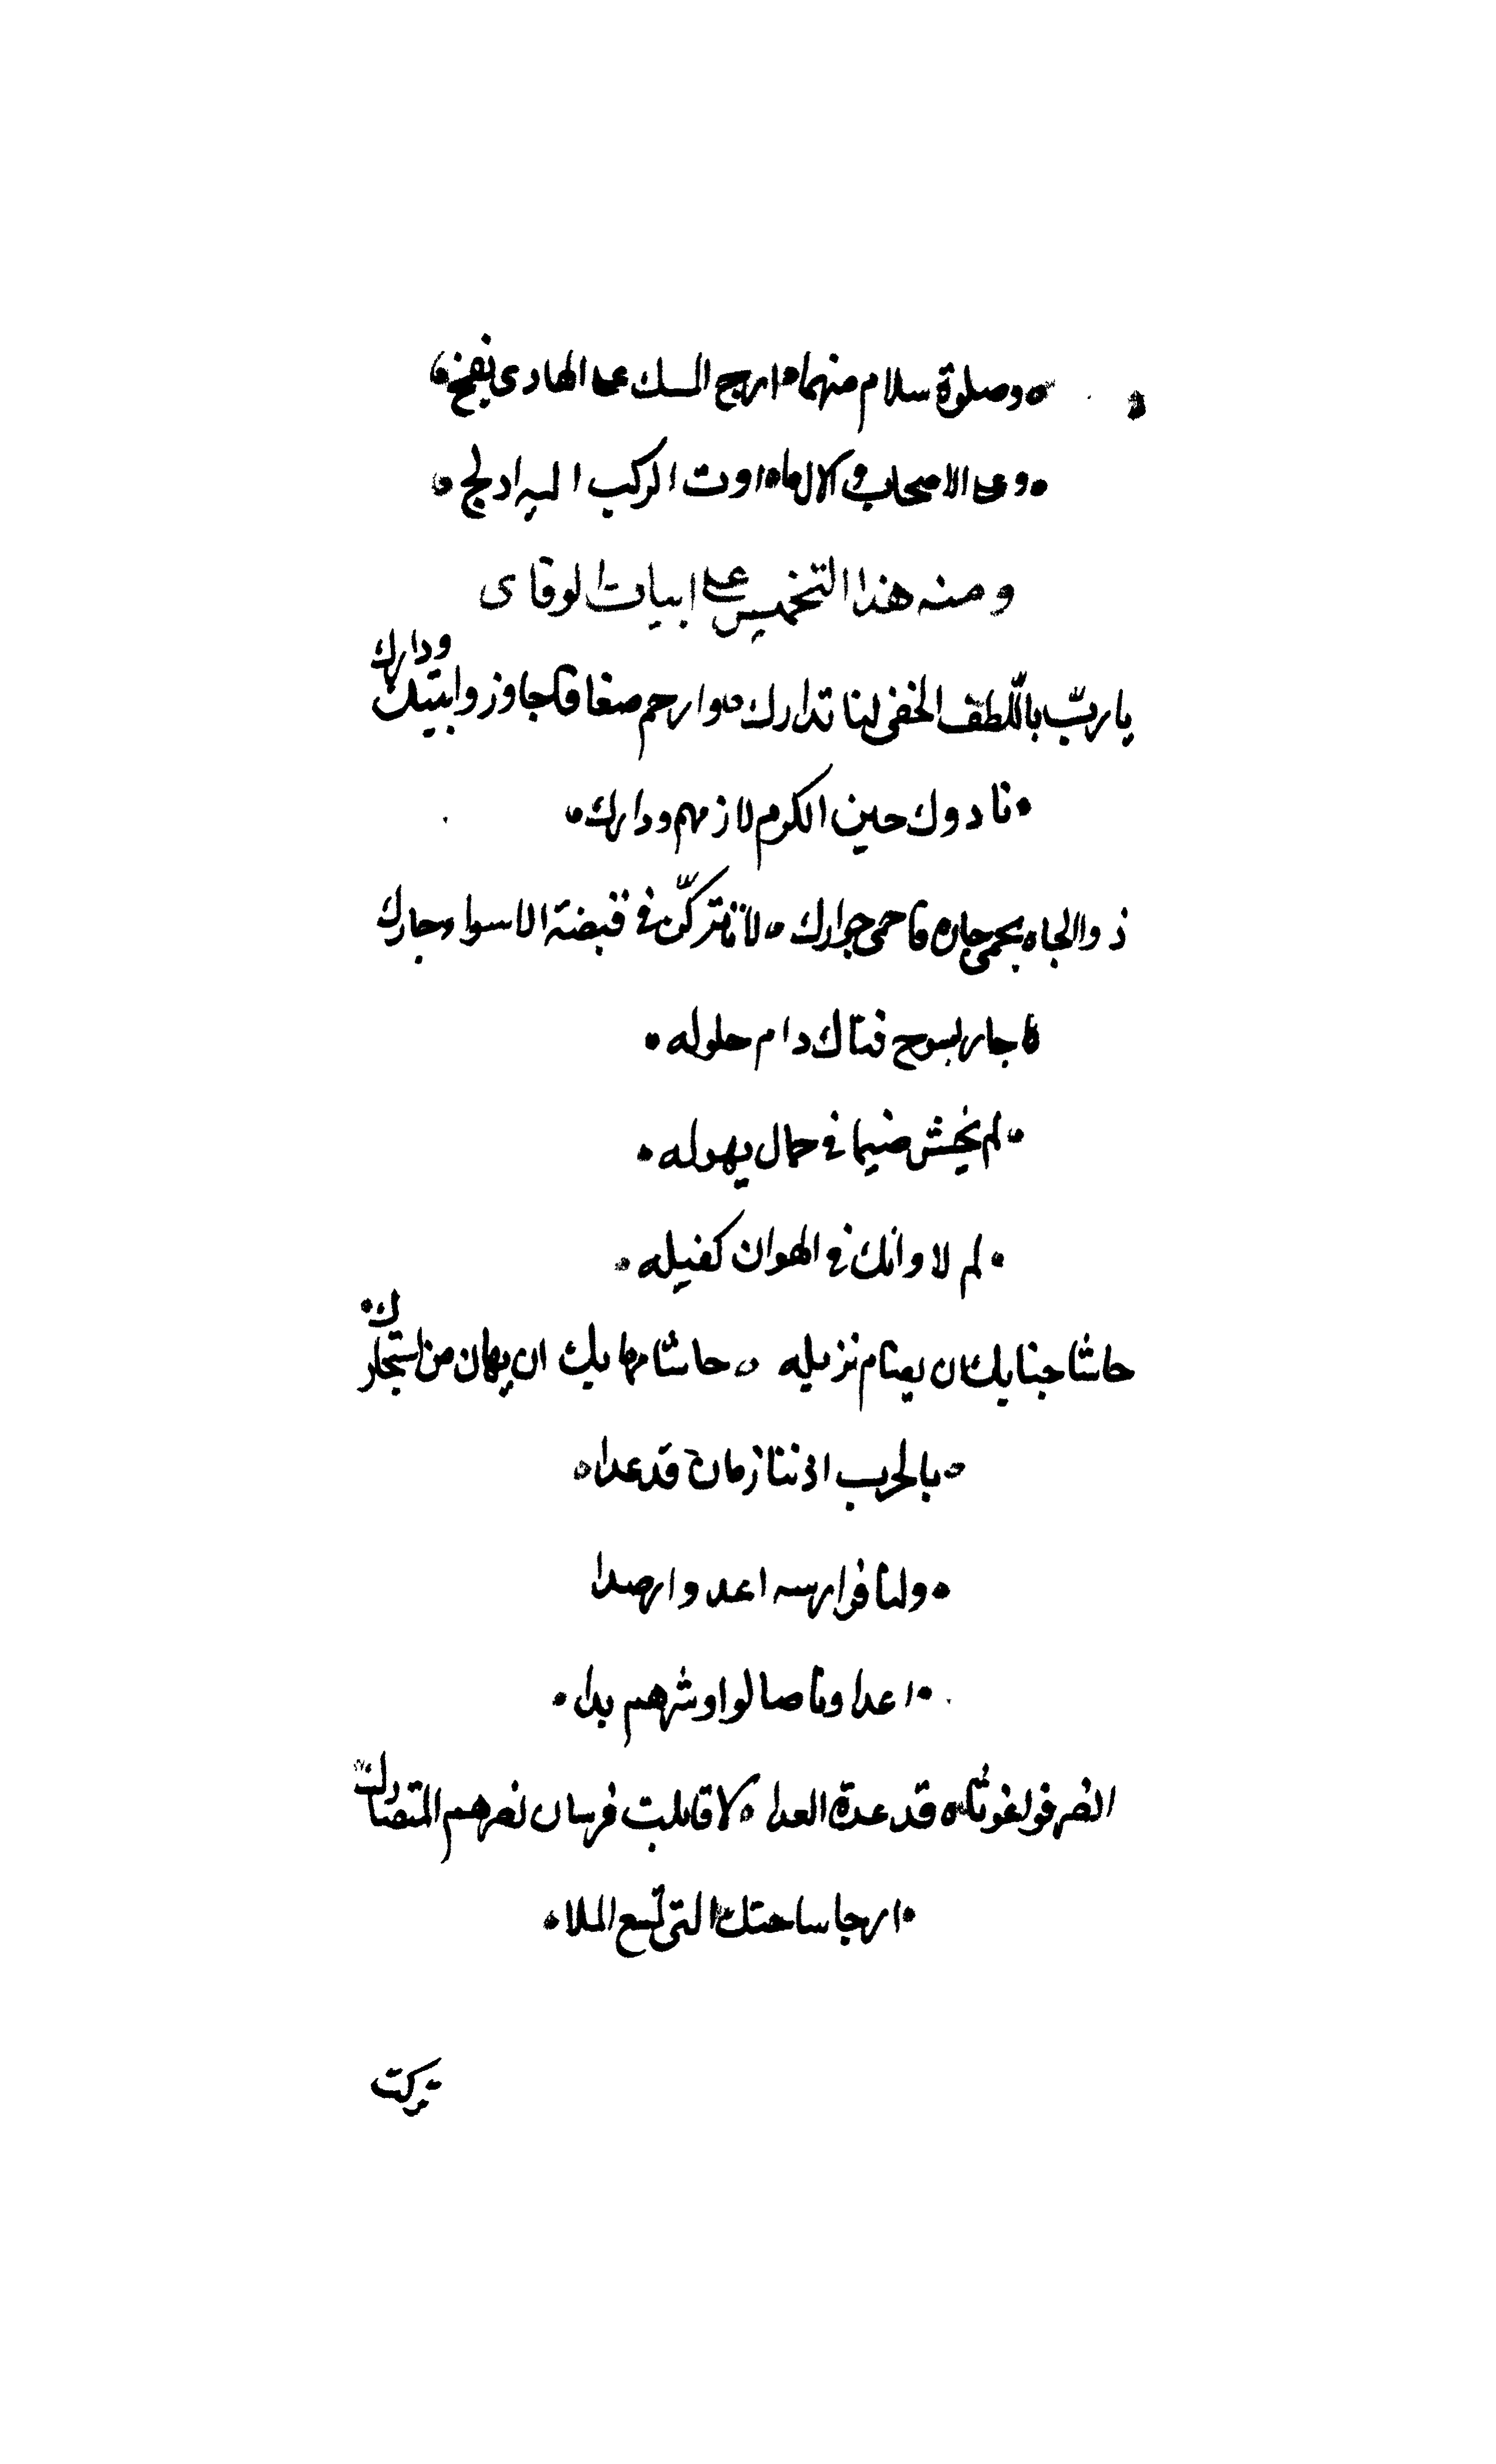 وصلوة سلام منهما ه اريج المسك على الهادى نفخ
وعلى الاصحاب والال ما ه اوت الركب اليه ادلج
ومنه هذا التخميس على ابيات لوفاى
يا ربّ باللّطف الخفى لنا تدارك وارحم
نادوك حين الكرم لازمهم ودارك
ذو الجاه يحمى جاره فاحمى جوارك لا تتركنّ فى قبضة الاسواء جارك
جار بسوح فناك دام حلوله
لم يخش ضيما فى حمال يهوله
لم لا وانك فى الهوان كفيله
حاشا جنابك ان يضام نزيله حاشا مهابك ان يهان من استجارك
بالحرب اذننا زمان قد عدا
ولنا فوارسه اعد وارصدا
اعداونا صالوا وشرهم بدا
قد عدة العدا لا قابلت فرسان نصرهم
ارجا ساحتك التى تسع الملا
تركت